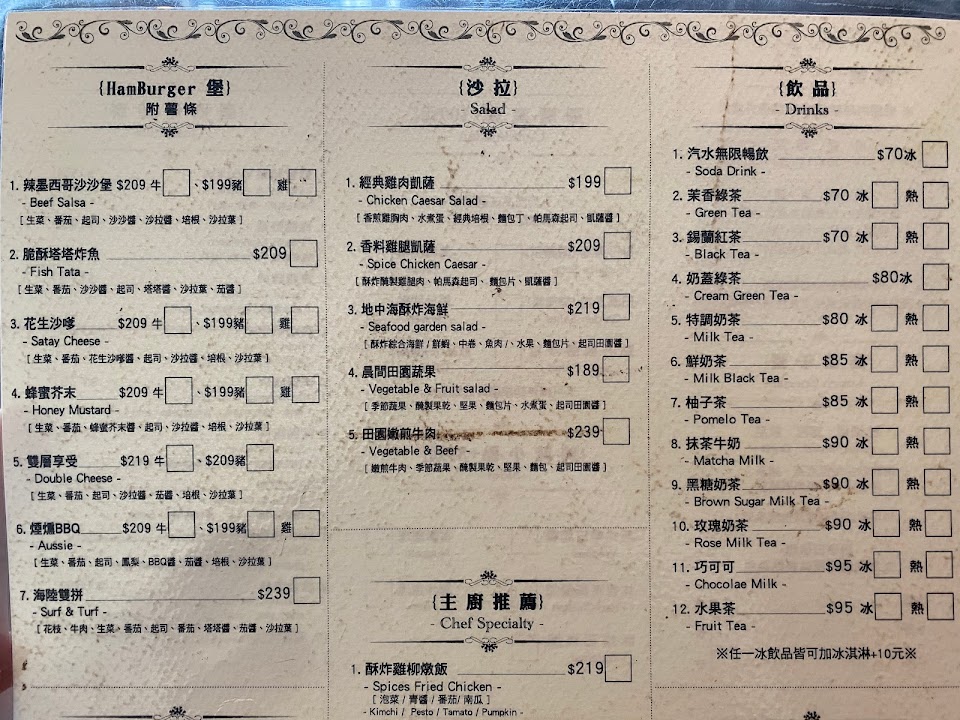 {HamBurger 堡}
附薯條
1. 辣墨西哥沙沙堡 $209 牛 、$199豬 雞
- Beef Salsa -
[ 生菜、番茄、起司、沙沙醬、沙拉醬、培根、沙拉葉 ]
2. 脆酥塔塔炸魚 $209
- Fish Tata -
[ 生菜、番茄、沙沙醬、起司、塔塔醬、沙拉葉、茄醬 ]
3. 花生沙嗲 $209 牛 、$199豬 雞
- Satay Cheese -
[ 生菜、番茄、花生沙嗲醬、起司、沙拉醬、培根、沙拉葉 ]
4. 蜂蜜芥末 $209 牛 、$199豬 雞
- Honey Mustard -
[ 生菜、番茄、蜂蜜芥末醬、起司、沙拉醬、培根、沙拉葉 ]
5. 雙層享受 $219 牛 、$209豬
- Double Cheese -
[ 生菜、番茄、起司、沙拉醬、茄醬、培根、沙拉葉 ]
6. 煙燻BBQ $209 牛 、$199豬 雞
- Aussie -
[ 生菜、番茄、起司、鳳梨、BBQ醬、茄醬、培根、沙拉葉 ]
7. 海陸雙拼 $239
- Surf & Turf -
[ 花枝、牛肉、生菜、番茄、起司、番茄、塔塔醬、茄醬、沙拉葉 ]
{沙 拉}
- Salad -
1. 經典雞肉凱薩 $199
- Chicken Caesar Salad -
[ 香煎雞胸肉、水煮蛋、經典培根、麵包丁、帕馬森起司、凱薩醬 ]
2. 香料雞腿凱薩 $209
- Spice Chicken Caesar -
[ 酥炸醃製雞腿肉、帕馬森起司、麵包片、凱薩醬 ]
3. 地中海酥炸海鮮 $219
- Seafood garden salad -
[ 酥炸綜合海鮮 / 鮮蝦、中卷、魚肉 /、水果、麵包片、起司田園醬 ]
4. 晨間田園蔬果 $189
- Vegetable & Fruit salad -
[ 季節蔬果、醃製果乾、堅果、麵包片、水煮蛋、起司田園醬 ]
5. 田園嫩煎牛肉 $239
- Vegetable & Beef -
[ 嫩煎牛肉、季節蔬果、醃製果乾、堅果、麵包、起司田園醬 ]
{主 廚 推 薦}
- Chef Specialty -
1. 酥炸雞柳燉飯 $219
- Spices Fried Chicken -
[ 泡菜 / 青醬 / 番茄/ 南瓜 ]
- Kimchi / Pesto / Tamato / Pumpkin -
{飲 品}
- Drinks -
1. 汽水無限暢飲 $70冰
- Soda Drink -
2. 茉香綠茶 $70 冰 熱
- Green Tea -
3. 錫蘭紅茶 $70 冰 熱
- Black Tea -
4. 奶蓋綠茶 $80冰
- Cream Green Tea -
5. 特調奶茶 $80 冰 熱
- Milk Tea -
6. 鮮奶茶 $85 冰 熱
- Milk Black Tea -
7. 柚子茶 $85 冰 熱
- Pomelo Tea -
8. 抹茶牛奶 $90 冰 熱
- Matcha Milk -
9. 黑糖奶茶 $90 冰 熱
- Brown Sugar Milk Tea -
10. 玫瑰奶茶 $90 冰 熱
- Rose Milk Tea -
11. 巧可可 $95 冰 熱
- Chocolae Milk -
12. 水果茶 $95 冰 熱
- Fruit Tea -
※任一冰飲品皆可加冰淇淋+10元※